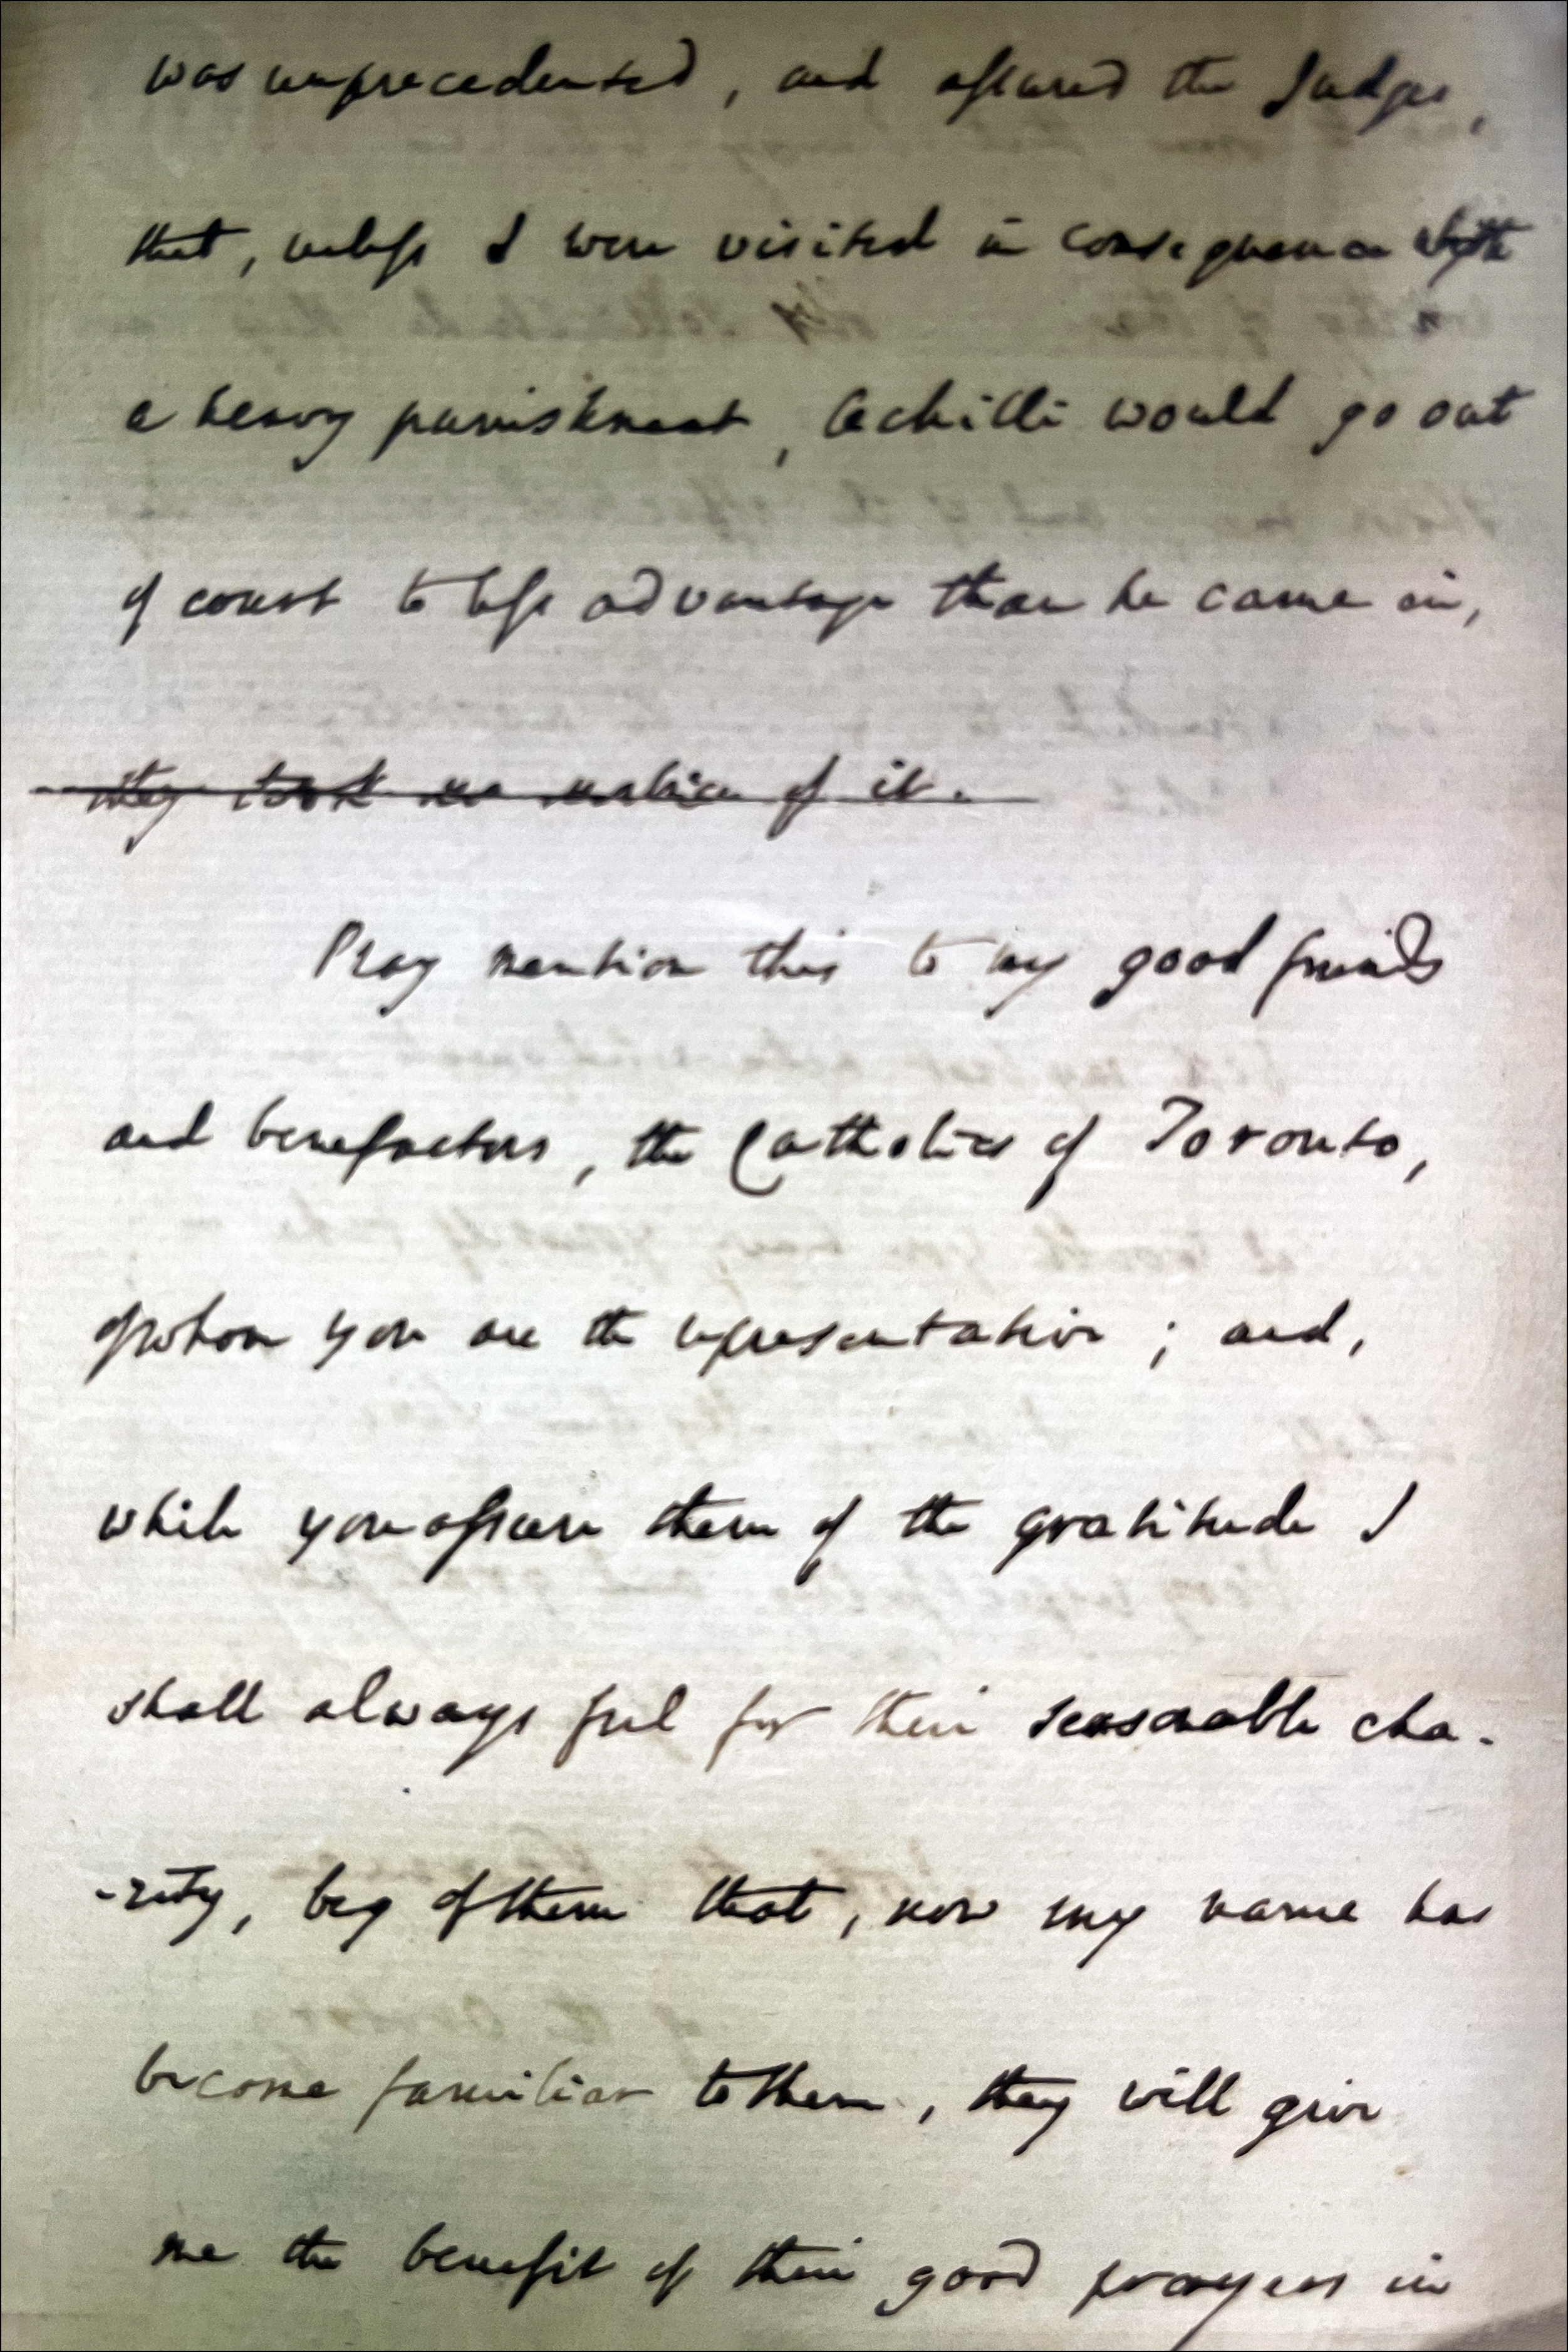 was unprecedented, and assured the Judges,
that, unless I were visited in consequence with
a heavy punishment, Achilli would go out
of court to less advantage than he came in,
they took no notice of it.
Pray mention this to my good friends
and benefactors, the Catholics of Toronto,
of whom you are the representative; and,
while you assure them of the gratitude I
shall always feel for their seasonable cha-
-rity, beg of them that, now my name has
become familiar to them, they will give
me the benefit of their good prayers in